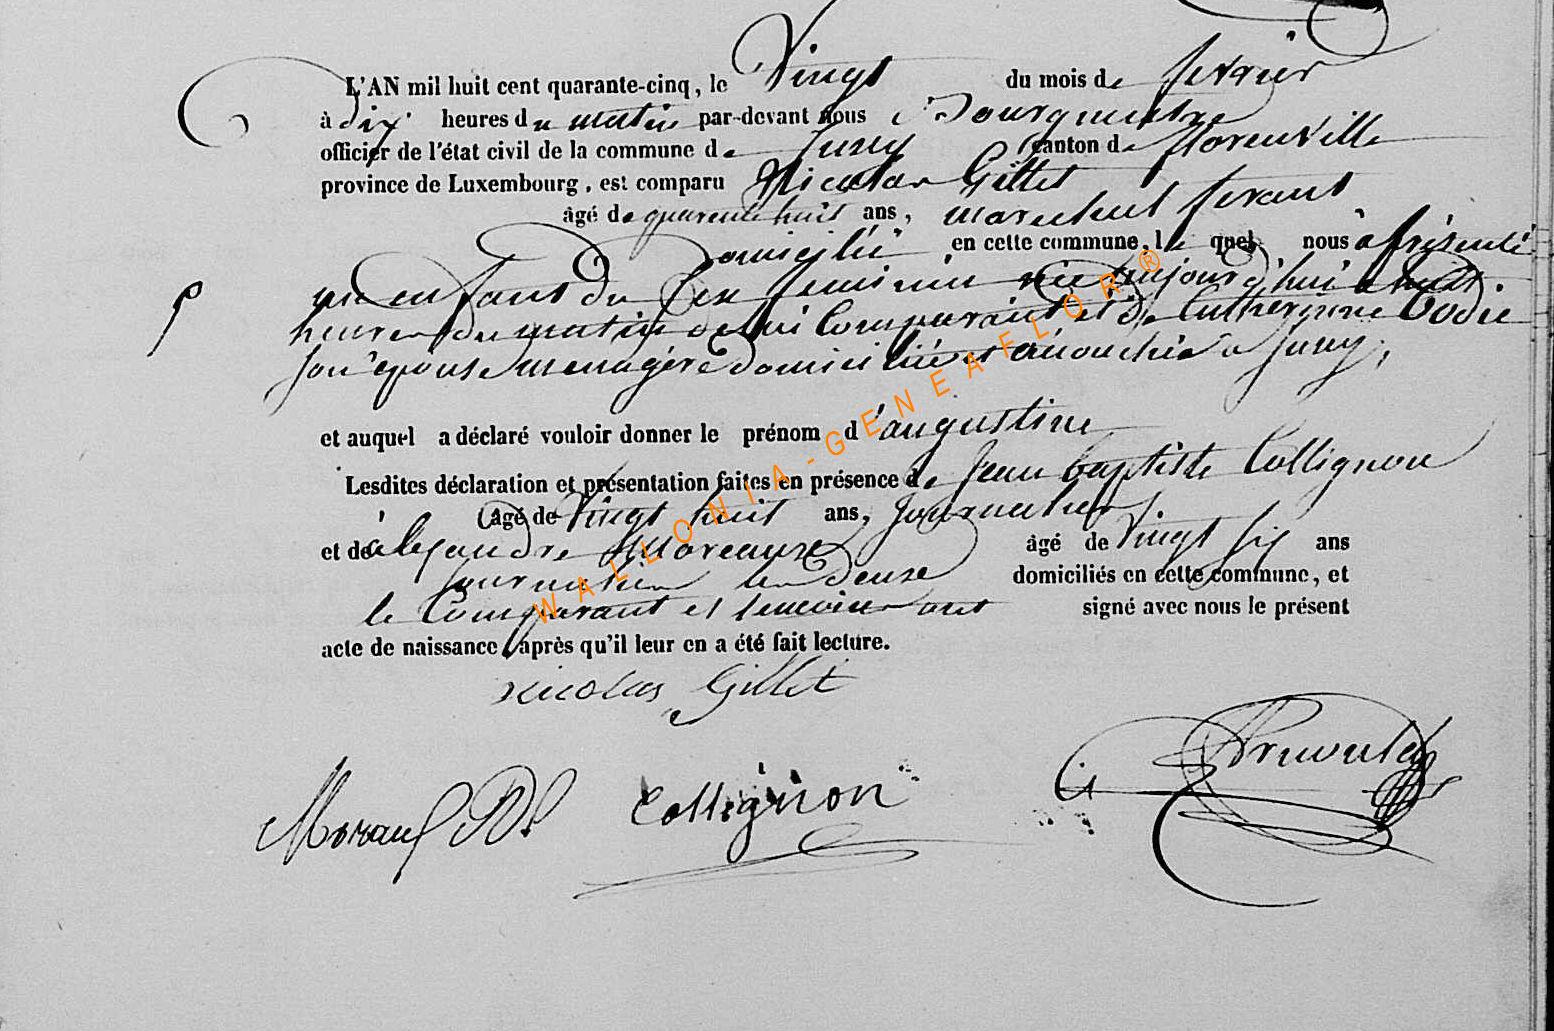 L'AN mil huit cent quarante-cinq, le Vingt du mois de fevrier
à dix heures du matin par-devant nous Bourgmestre
officier de l'état civil de la commune de canton de florenville
province de Luxembourg, est comparu Nicolas Gillet
âgé de quarente huit ans, marechal ferant
Domicilié en cette commune, le quel nous a présenté
un enfant du sex feminin née aujourd'hui a huit
heures du matin de lui Comparant et de Catherine Godie
son épouse menagère domiciliée et accouchée a
et auquel a déclaré vouloir donner le prénom d'augustine
Lesdites déclaration et présentation faites en présence de Jean baptiste Collignon
âgé de Vingt huit ans, journalier
et de alexandre Moreaux âgé de Vingt six ans
journalier les deux domiciliés en cette commune, et
le Comparant et temoins ont signé avec nous le présent
acte de naissance, après qu'il leur en a été fait lecture.
nicolas Gillet
Collignon
WALLONIA-GENEAFLOR®